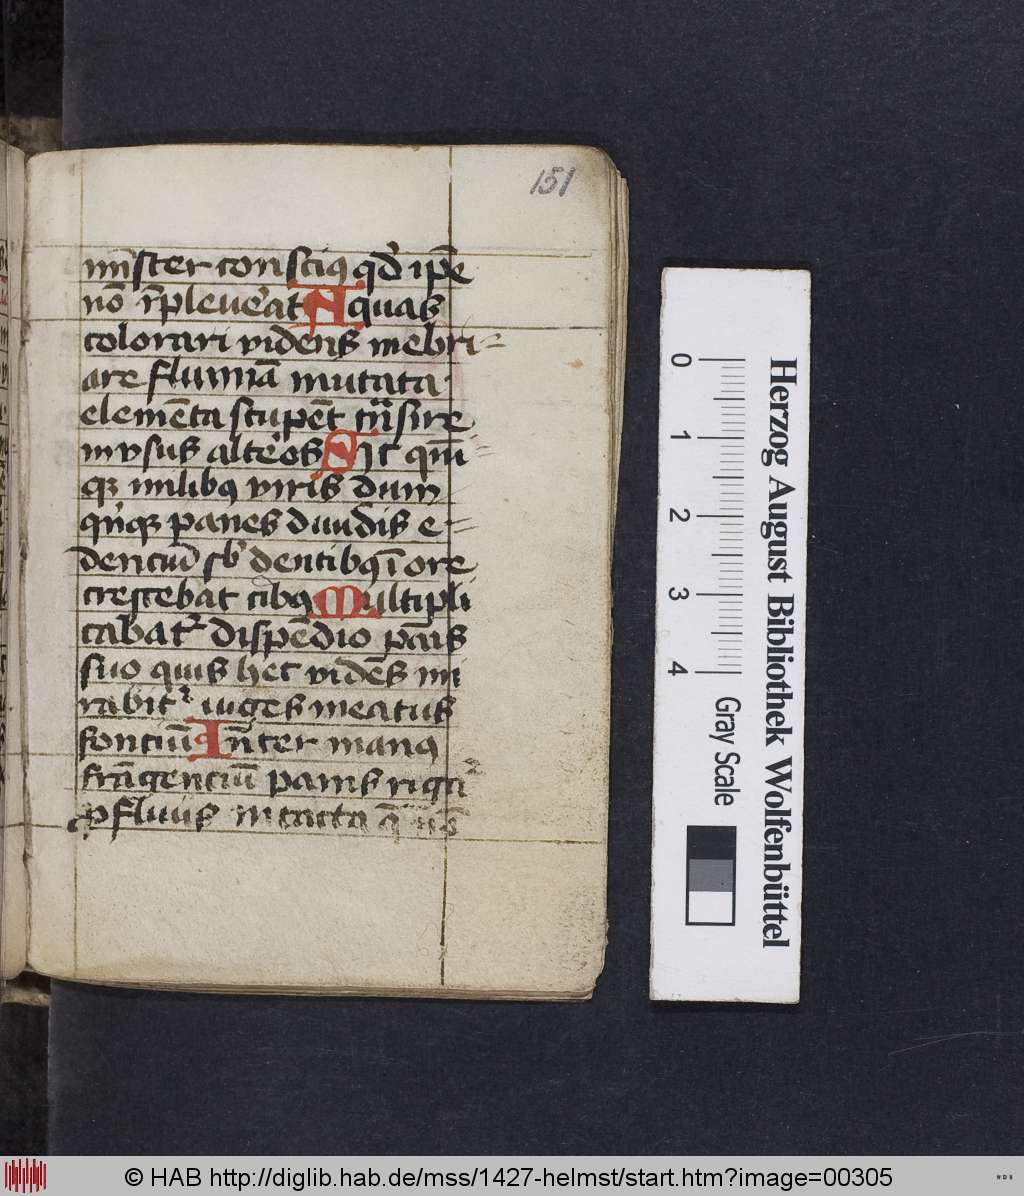 151
mīster conscius qd' ipē
nō īpleuerat Aquas
colorari videns inebri
are flumīa mutata
elemēta stupēt trāsire
in vsus alteros Sic quīn
qz milibus viris dum
quīqz panes diuidis e
dencium sb dentibus ī ore
crescebat cibus Multipli
cabatr dispēdio panis
suo quis hec vidēs mi
rabitr iuges meatus
fonciū Inter manus
frāgenciū panis rigat
pfluus intacta q nō
Herzog August Bibliothek Wolfenbüttel
0 1 2 3 4 Gray Scale
© HAB http://diglib.hab.de/mss/1427-helmst/start.htm?image=00305